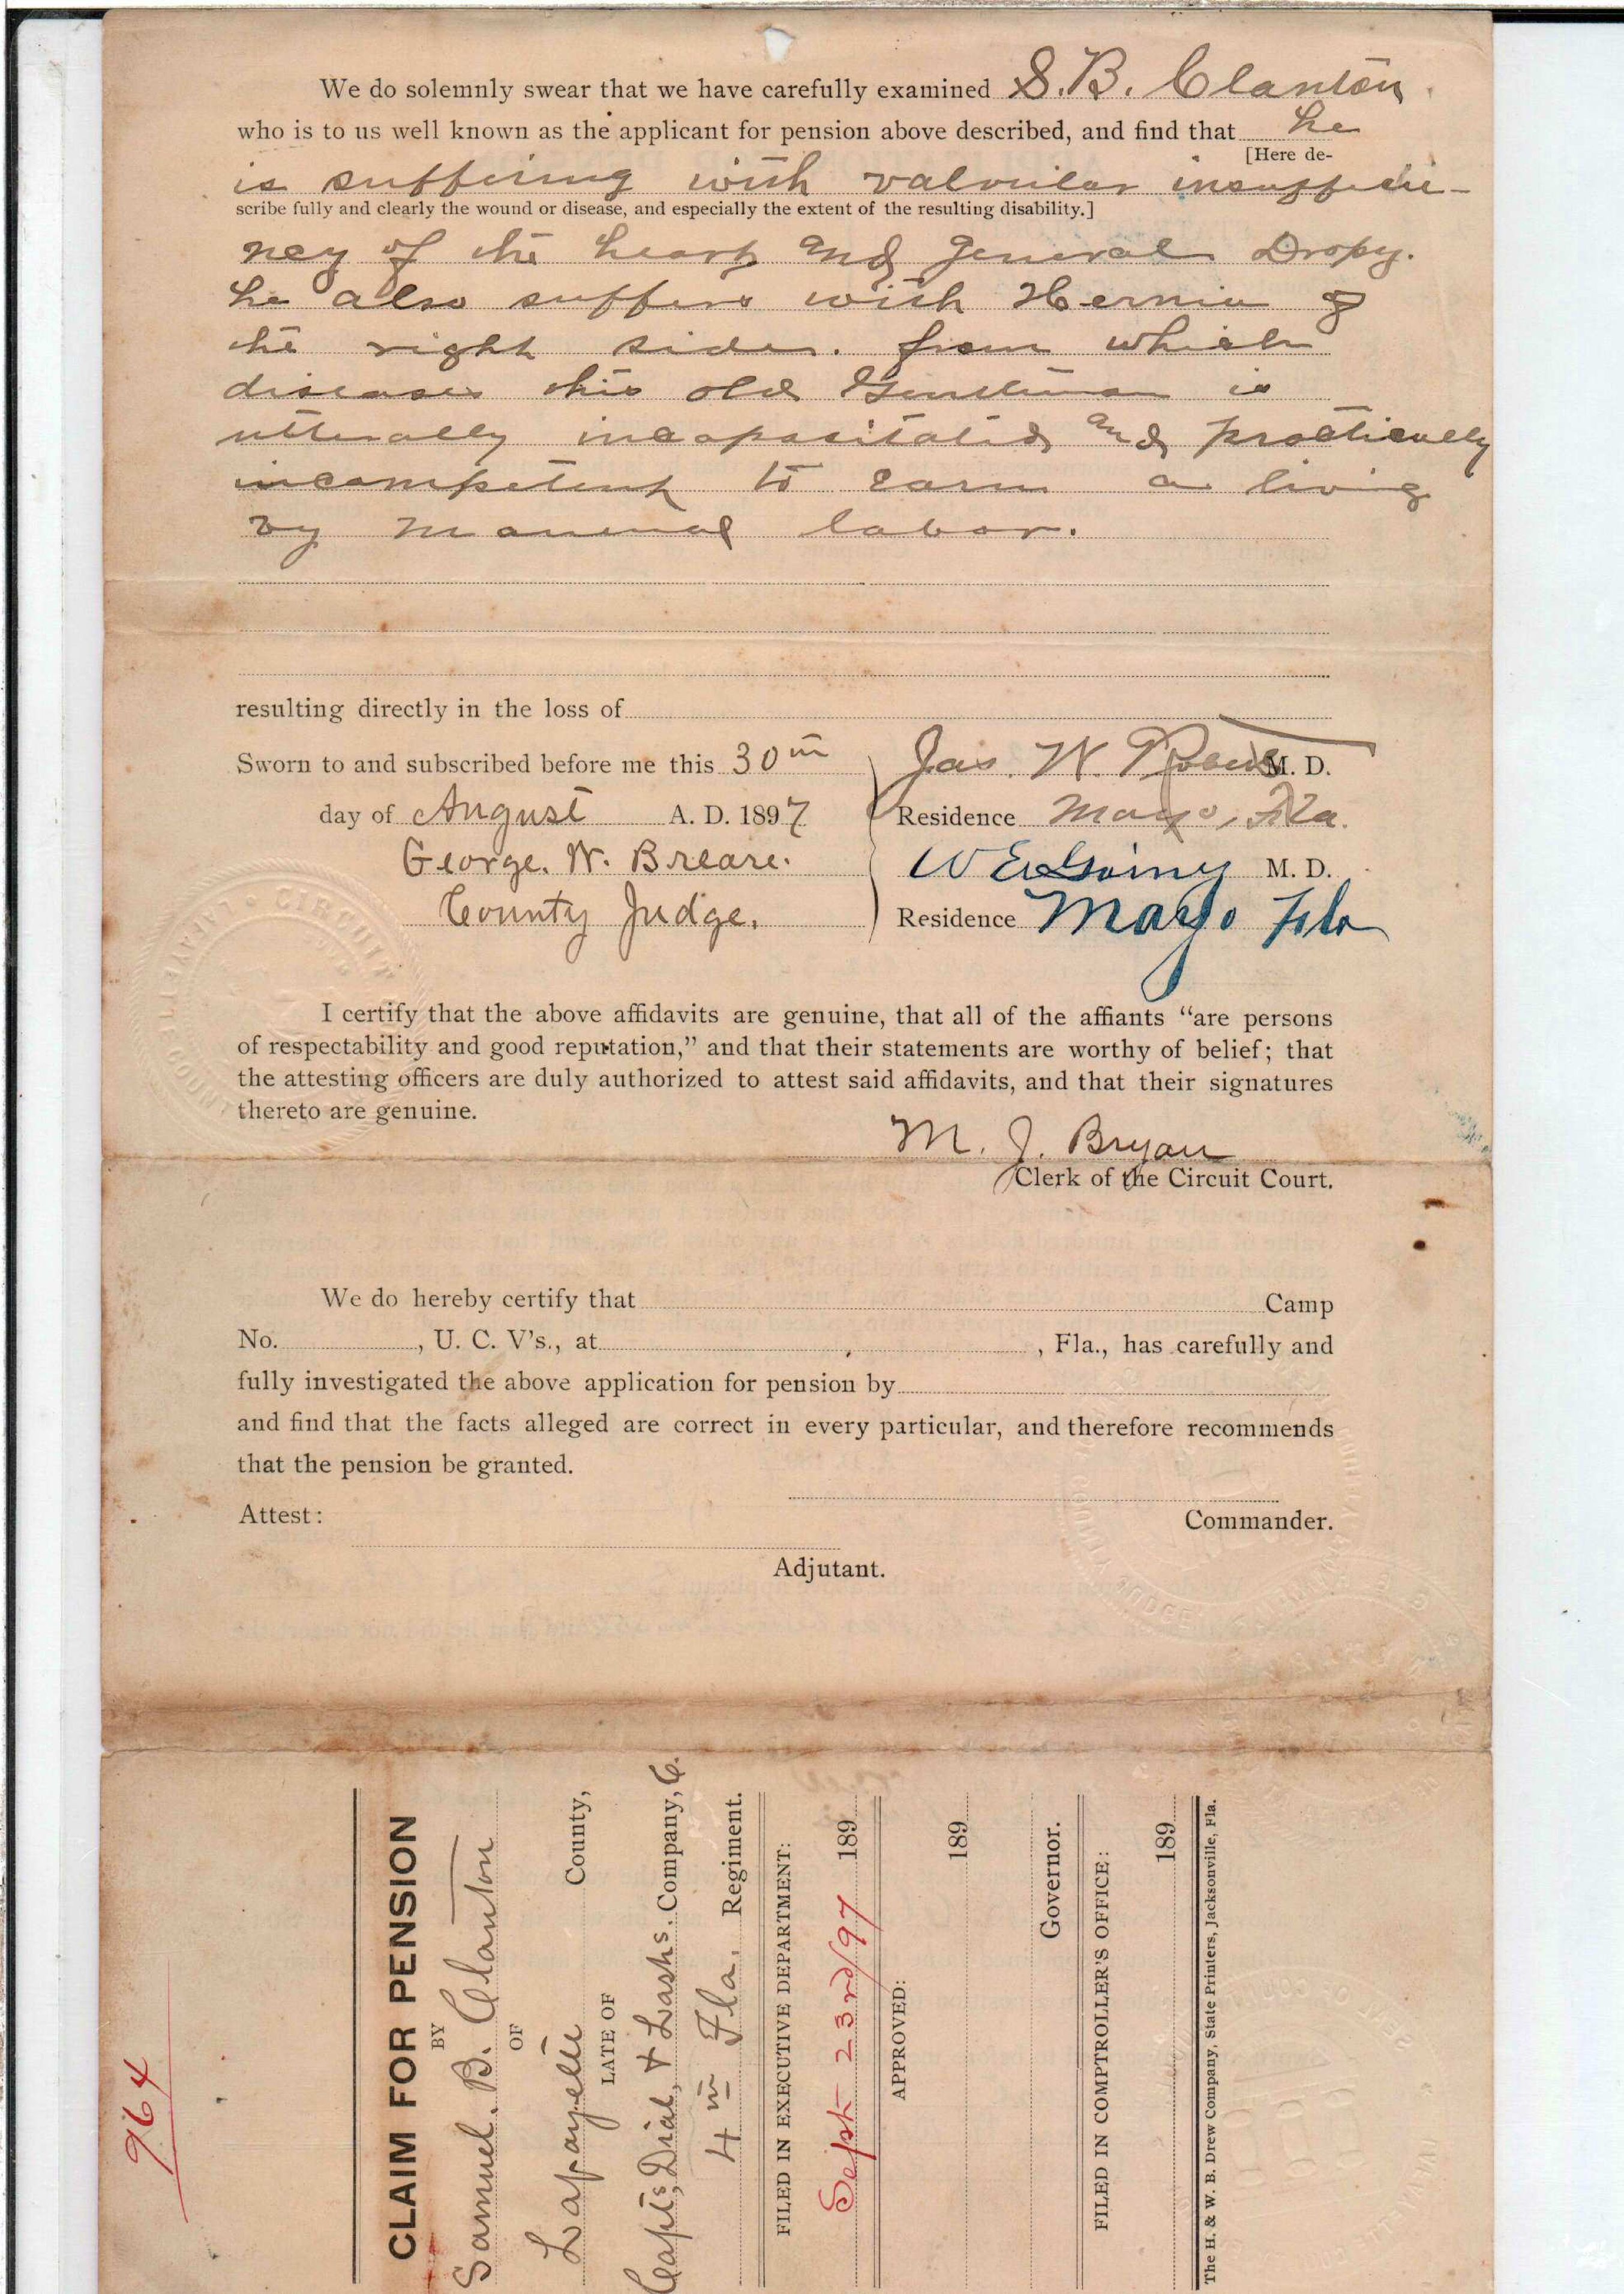 We do solemnly swear that we have carefully examined S. B. Clanton
who is to us well known as the applicant for pension above described, and find that he
[Here de-
is suffering with valvular insufficie-
scribe fully and clearly the wound or disease, and especially the extent of the resulting disability.]
ncy of the heart and general Dropy.
he also suffers with Hernia of
the right side. from which
diseases this old Gentleman is
utterally incapasitated and practically
incompetent to earn a living
by manual labor.
resulting directly in the loss of
Sworn to and subscribed before me this 30th
Jas. W. M. D.
day of August A. D. 1897
Residence Mayo, Fla.
George. W. Breare.
W E M. D.
County Judge.
Residence Mayo Fla
I certify that the above affidavits are genuine, that all of the affiants “are persons
of respectability and good reputation,” and that their statements are worthy of belief; that
the attesting officers are duly authorized to attest said affidavits, and that their signatures
thereto are genuine.
M. J. Bryan
Clerk of the Circuit Court.
We do hereby certify that Camp
No. , U. C. V's., at , Fla., has carefully and
fully investigated the above application for pension by
and find that the facts alleged are correct in every particular, and therefore recommends
that the pension be granted.
Attest:
Commander.
Adjutant.
964
CLAIM FOR PENSION
BY
Samuel. B. Clanton
OF
Lafayette County,
LATE OF
Capts, Dial, & Lashs. Company, C.
4th Fla. Regiment.
FILED IN EXECUTIVE DEPARTMENT:
Sept 23rd/97 189
APPROVED:
189
Governor.
FILED IN COMPTROLLER'S OFFICE:
189
The H. & W. B. Drew Company, State Printers, Jacksonville, Fla.